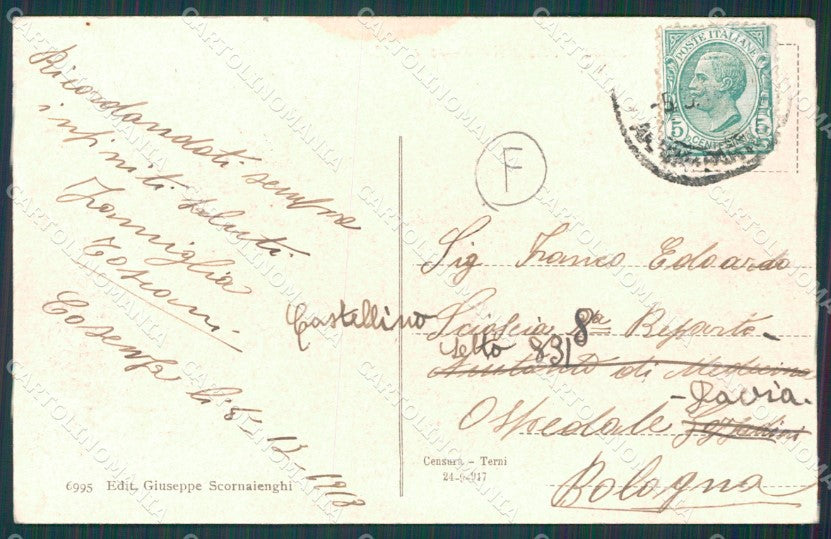 Ricordandoti sempre
infiniti saluti.
Famiglia
Toscani
Cosenza li 8-12-1918
6995 Edit. Giuseppe Scornaienghi
POSTE ITALIANE
5 CENTESIMI 5
F
Sig Franco Edoardo
Castellino
Scioscia 8ª Reparto
letto 831 8
di Medicina
Ospedale Gozzadini
Pavia.
Bologna
Censura - Terni
24-6-917
CARTOLINOMANIA